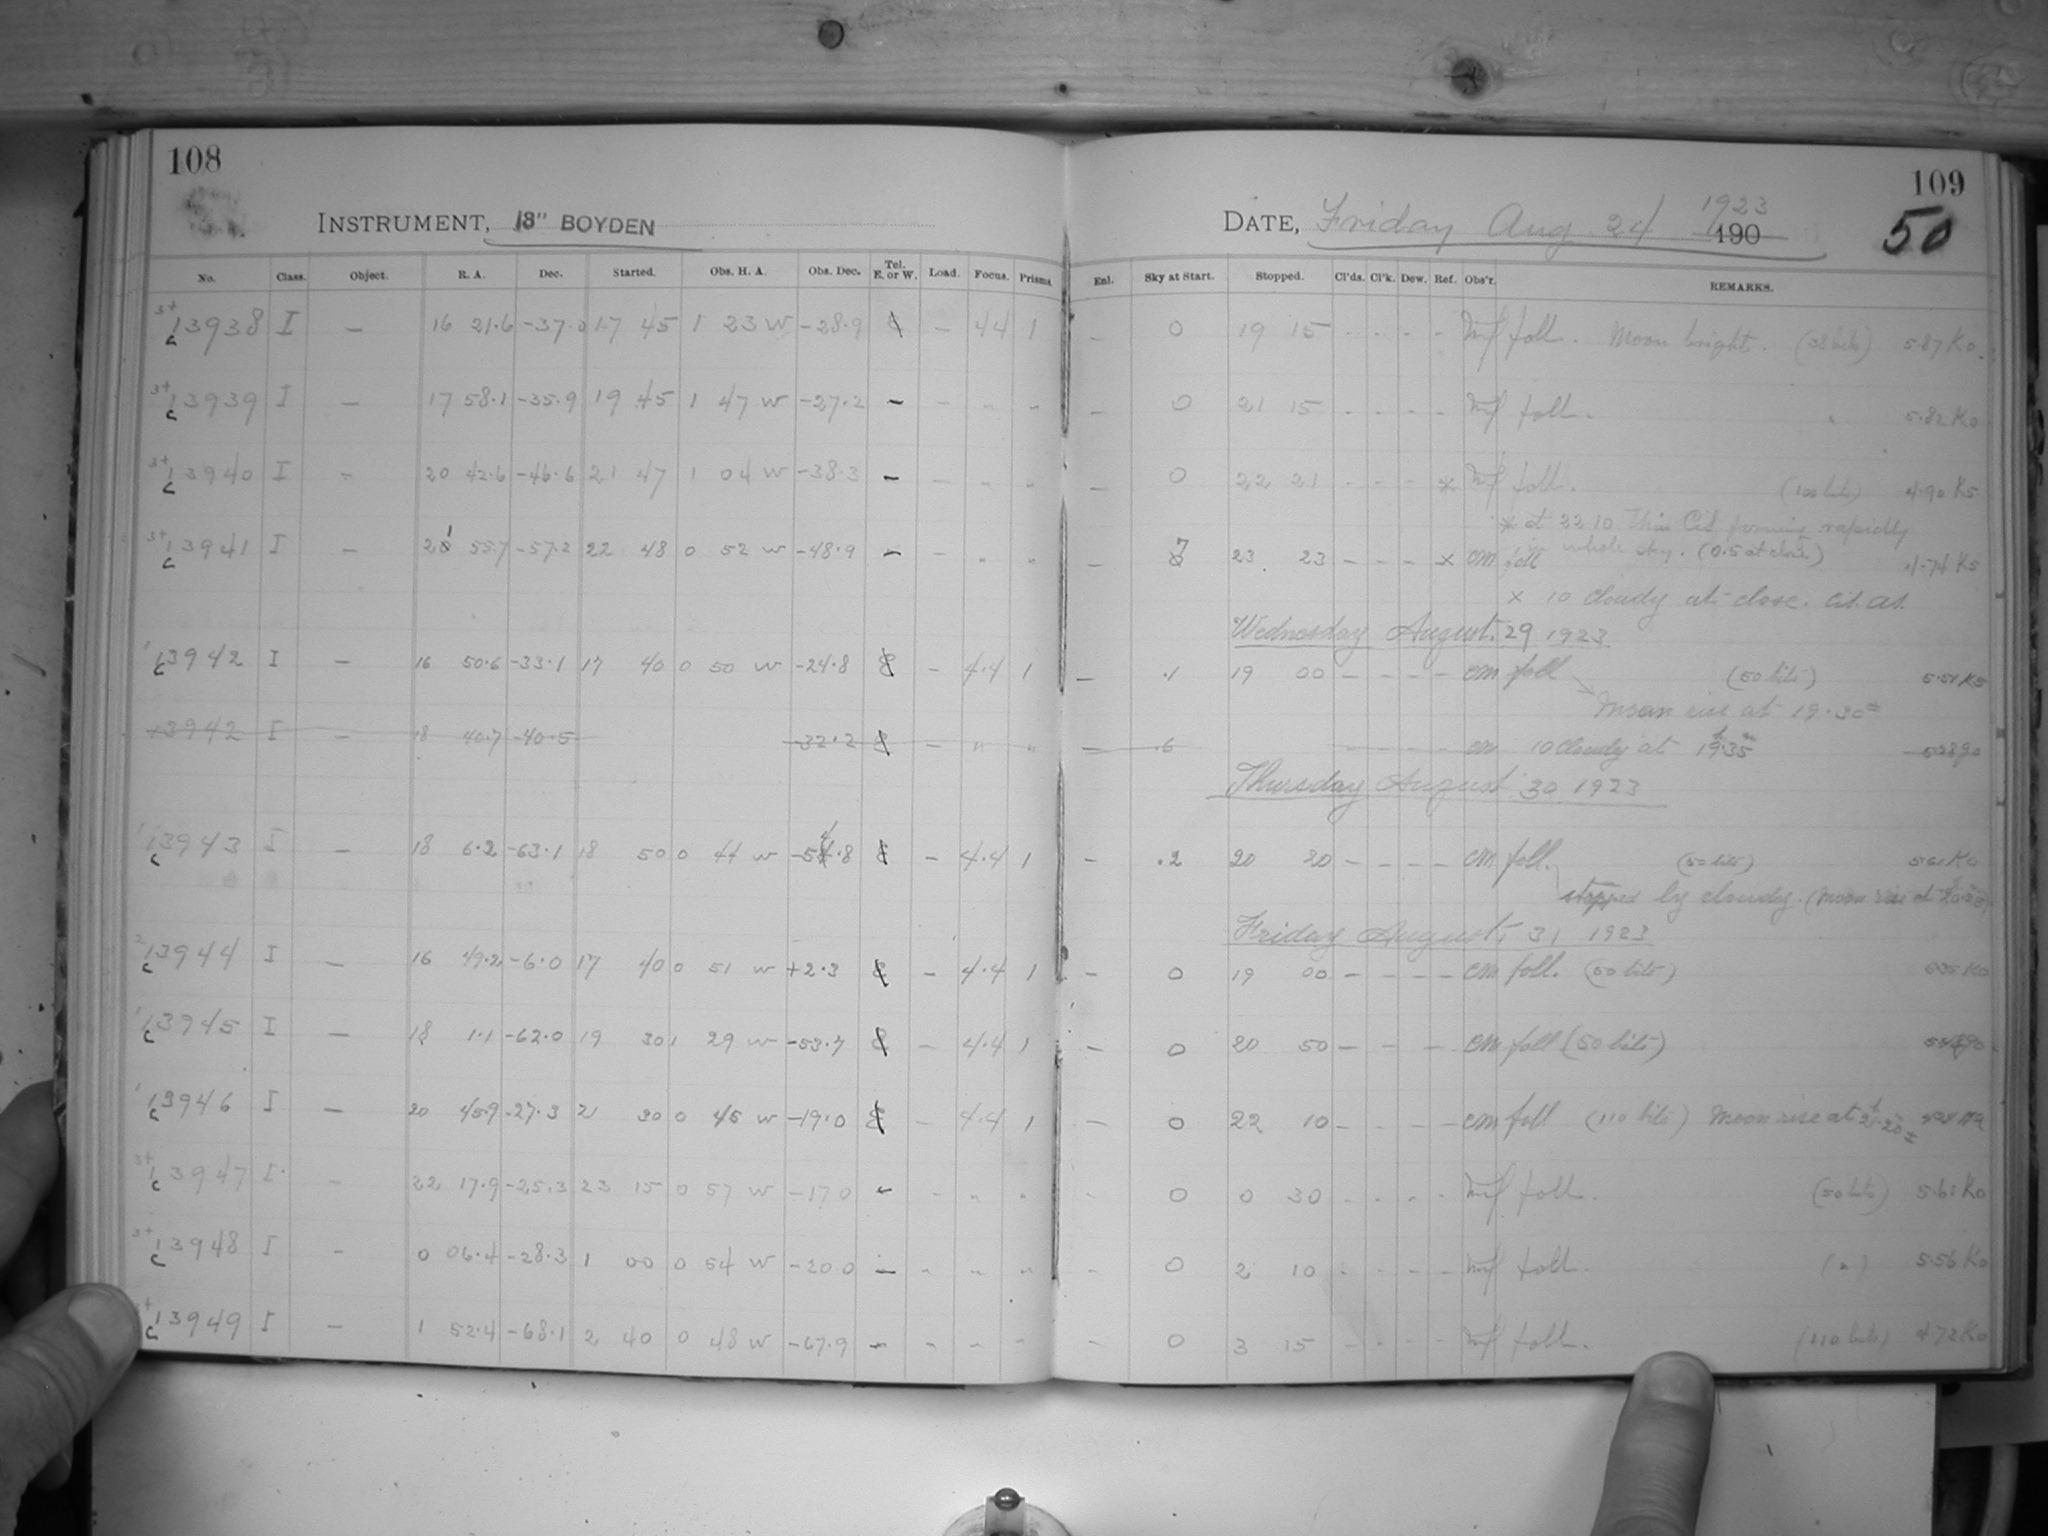 108
INSTRUMENT, 13" BOYDEN
No. Class. Object. R. A. Dec. Started. Obs. H. A. Obs. Dec. Tel. E. or W. Load. Focus. Prisms.
3+ 13938 I — 16 21.6 -37.0 17 45 1 23 W -28.9 — 44 1
3+ 13939 I — 17 58.1 -35.9 19 45 1 47 W -27.2 — — " "
3+ 13940 I — 20 42.6 -46.6 21 47 1 04 W -38.3 — — " "
3+ 13941 I — 21 55.7 -57.2 22 48 0 52 W -48.9 — — " "
1 13942 I — 16 50.6 -33.1 17 40 0 50 W -24.8 — 4.4 1
13942 I — 18 40.7 -40.5 -32.2 — " "
1 13943 I — 18 6.2 -63.1 18 50 0 44 W -54.8 — 4.4 1
2 13944 I — 16 49.2 -6.0 17 40 0 51 W +2.3 — 4.4 1
1 13945 I — 18 1.1 -62.0 19 30 1 29 W -53.7 — 4.4 1
1 13946 I — 20 45.9 -27.3 21 30 0 45 W -19.0 — 4.4 1
3+ 13947 I — 22 17.9 -25.3 23 15 0 57 W -17.0 — — " "
3+ 13948 I — 0 06.4 -28.3 1 00 0 54 W -20.0 — " " "
3+ 13949 I — 1 52.4 -68.1 2 40 0 48 W -67.9 — — — —
109
DATE, Friday Aug 24 1923 190
50
Enl. Sky at Start. Stopped. Cl'ds. Cl'k. Dew. Ref. Obs'r. REMARKS.
— 0 19 15 - - - - foll. Moon bright. 5.87 K0
— 0 21 15 - - - - foll. " 5.82 K0
— 0 22 21 - - - * foll. (100 bits) 4.90 K5
* at 22 10 thin Cil forming rapidly
whole sky. (0.5 at close)
— 7 23 23 - - - x CM foll 4.74 K5
x 10 cloudy at close.
Wednesday August 29 1923
— .1 19 00 - - - - CM foll (50 bits) 5.51 K5
Moon rise at 19.30±
— .6 - - - - CM 10 cloudy at 19h 35m
Thursday August 30 1923
— .2 20 20 - - - - CM foll. (50 bits) 5.61 K0
stopped by cloudy. (Moon rise at
Friday August 31 1923
— 0 19 00 - - - - CM foll. (50 bits)
— 0 20 50 - - - CM foll (50 bits)
— 0 22 10 - - - - CM foll (110 bits) Moon rise at 21.20±
- 0 0 30 - - - - foll. (50 bits) 5.61 K0
- 0 2 10 - - - - foll. (") 5.56 K0
- 0 3 15 - - - - foll. (110 bits) 4.72 K0